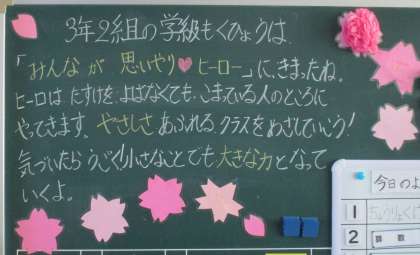 3年2組の学級もくひょうは、
「みんなが 思いやり♥ヒーロー」に、きまったね。
ヒーローは たすけを よばなくても、こまっている人のところに
やってきます。やさしさ あふれる クラスを めざしていこう!
気づいたら うごく 小さなことでも 大きな力となって
いくよ。
今日のよ
1
2
算数